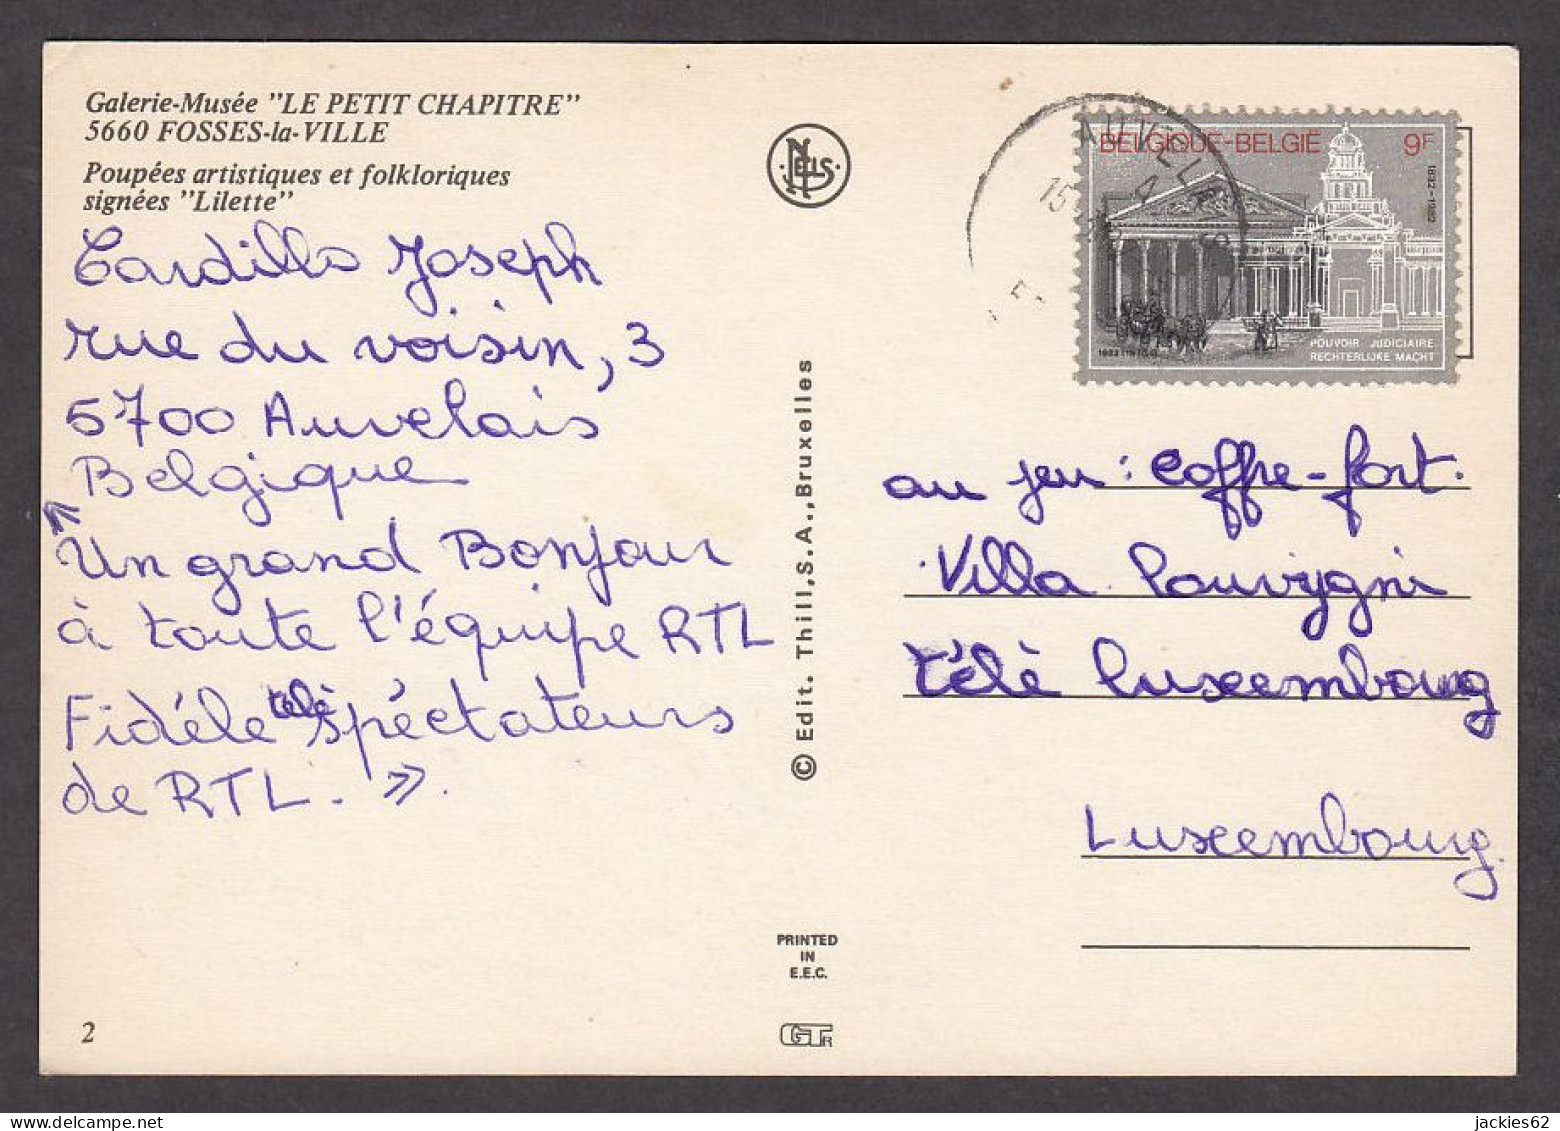 Galerie-Musée "LE PETIT CHAPITRE"
5660 FOSSES-la-VILLE
Poupées artistiques et folkloriques
signées "Lilette"
Cardillo Joseph
rue du voisin, 3
5700 Auvelais
Belgique
Un grand Bonjour
à toute l'équipe RTL
Fidéle télé spéctateurs
de RTL. ».
2
NELS
© Edit. Thill, S.A., Bruxelles
PRINTED
IN
E.E.C.
GTR
AUVELAIS
15
BELGIQUE-BELGIË 9F
1832-1982
POUVOIR JUDICIAIRE
RECHTERLIJKE MACHT
au jeu : Coffre-fort.
Villa Louvygni
télè Luxembourg
Luxembourg.
jackies62